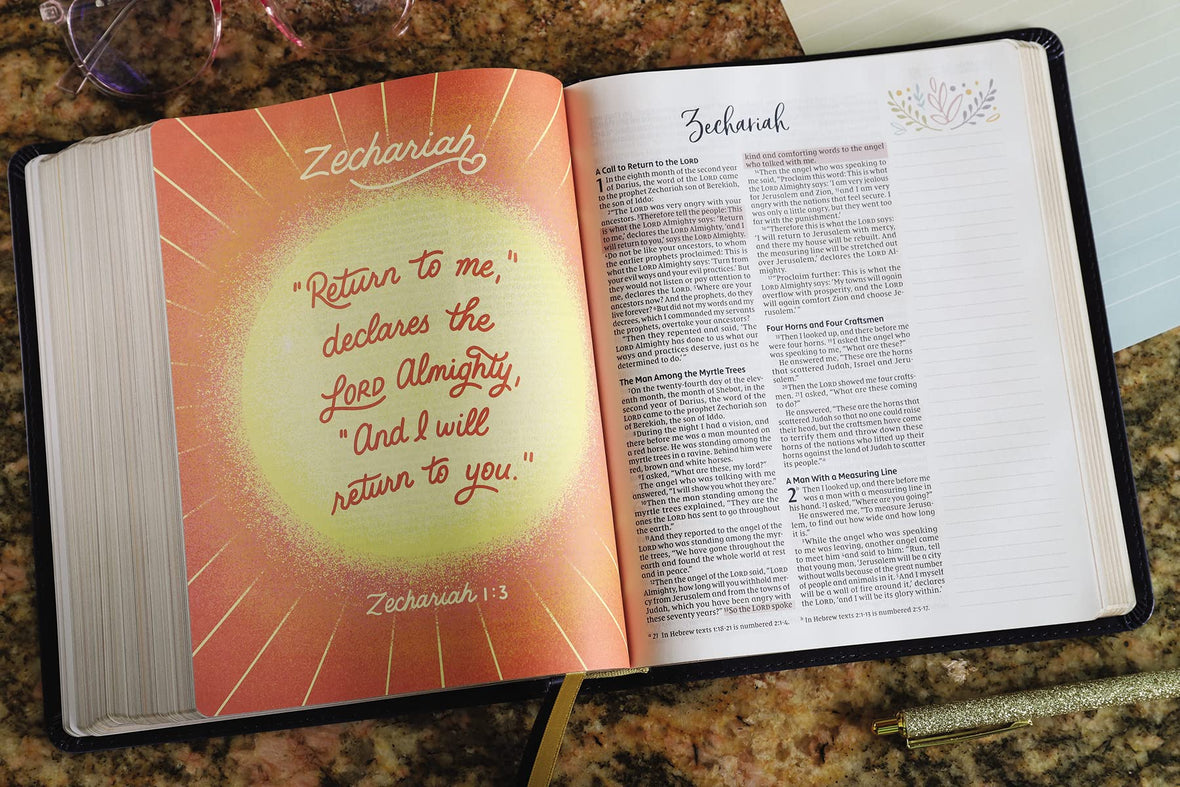 Zechariah
"Return to me,"
declares the
LORD Almighty,
"And I will
return to you."
Zechariah 1:3
Zechariah
A Call to Return to the LORD
1 In the eighth month of the second year
of Darius, the word of the LORD came
to the prophet Zechariah son of Berekiah,
the son of Iddo:
2"The LORD was very angry with your
ancestors. 3Therefore tell the people: This
is what the LORD Almighty says: 'Return
to me,' declares the LORD Almighty, 'and I
will return to you,' says the LORD Almighty.
4Do not be like your ancestors, to whom
the earlier prophets proclaimed: This is
what the LORD Almighty says: 'Turn from
your evil ways and your evil practices.' But
they would not listen or pay attention to
me, declares the LORD. 5Where are your
ancestors now? And the prophets, do they
live forever? 6But did not my words and my
decrees, which I commanded my servants
the prophets, overtake your ancestors?
"Then they repented and said, 'The
LORD Almighty has done to us what our
ways and practices deserve, just as he
determined to do.'"
The Man Among the Myrtle Trees
7On the twenty-fourth day of the elev-
enth month, the month of Shebat, in the
second year of Darius, the word of the
LORD came to the prophet Zechariah son
of Berekiah, the son of Iddo.
8During the night I had a vision, and
there before me was a man mounted on
a red horse. He was standing among the
myrtle trees in a ravine. Behind him were
red, brown and white horses.
9I asked, "What are these, my lord?"
The angel who was talking with me
answered, "I will show you what they are."
10Then the man standing among the
myrtle trees explained, "They are the
ones the LORD has sent to go throughout
the earth."
11And they reported to the angel of the
LORD who was standing among the myr-
tle trees, "We have gone throughout the
earth and found the whole world at rest
and in peace."
12Then the angel of the LORD said, "LORD
Almighty, how long will you withhold mer-
cy from Jerusalem and from the towns of
Judah, which you have been angry with
these seventy years?" 13So the LORD spoke
kind and comforting words to the angel
who talked with me.
14Then the angel who was speaking to
me said, "Proclaim this word: This is what
the LORD Almighty says: 'I am very jealous
for Jerusalem and Zion, 15and I am very
angry with the nations that feel secure. I
was only a little angry, but they went too
far with the punishment.'
16"Therefore this is what the LORD says:
'I will return to Jerusalem with mercy,
and there my house will be rebuilt. And
the measuring line will be stretched out
over Jerusalem,' declares the LORD Al-
mighty.
17"Proclaim further: This is what the
LORD Almighty says: 'My towns will again
overflow with prosperity, and the LORD
will again comfort Zion and choose Je-
rusalem.'"
Four Horns and Four Craftsmen
18Then I looked up, and there before me
were four horns. 19I asked the angel who
was speaking to me, "What are these?"
He answered me, "These are the horns
that scattered Judah, Israel and Jeru-
salem."
20Then the LORD showed me four crafts-
men. 21I asked, "What are these coming
to do?"
He answered, "These are the horns that
scattered Judah so that no one could raise
their head, but the craftsmen have come
to terrify them and throw down these
horns of the nations who lifted up their
horns against the land of Judah to scatter
its people."a
A Man With a Measuring Line
2b Then I looked up, and there before me
was a man with a measuring line in
his hand. 2I asked, "Where are you going?"
He answered me, "To measure Jerusa-
lem, to find out how wide and how long
it is."
3While the angel who was speaking
to me was leaving, another angel came
to meet him 4and said to him: "Run, tell
that young man, 'Jerusalem will be a city
without walls because of the great number
of people and animals in it. 5And I myself
will be a wall of fire around it,' declares
the LORD, 'and I will be its glory within.'
a 21 In Hebrew texts 1:18-21 is numbered 2:1-4.
b In Hebrew texts 2:1-13 is numbered 2:5-17.